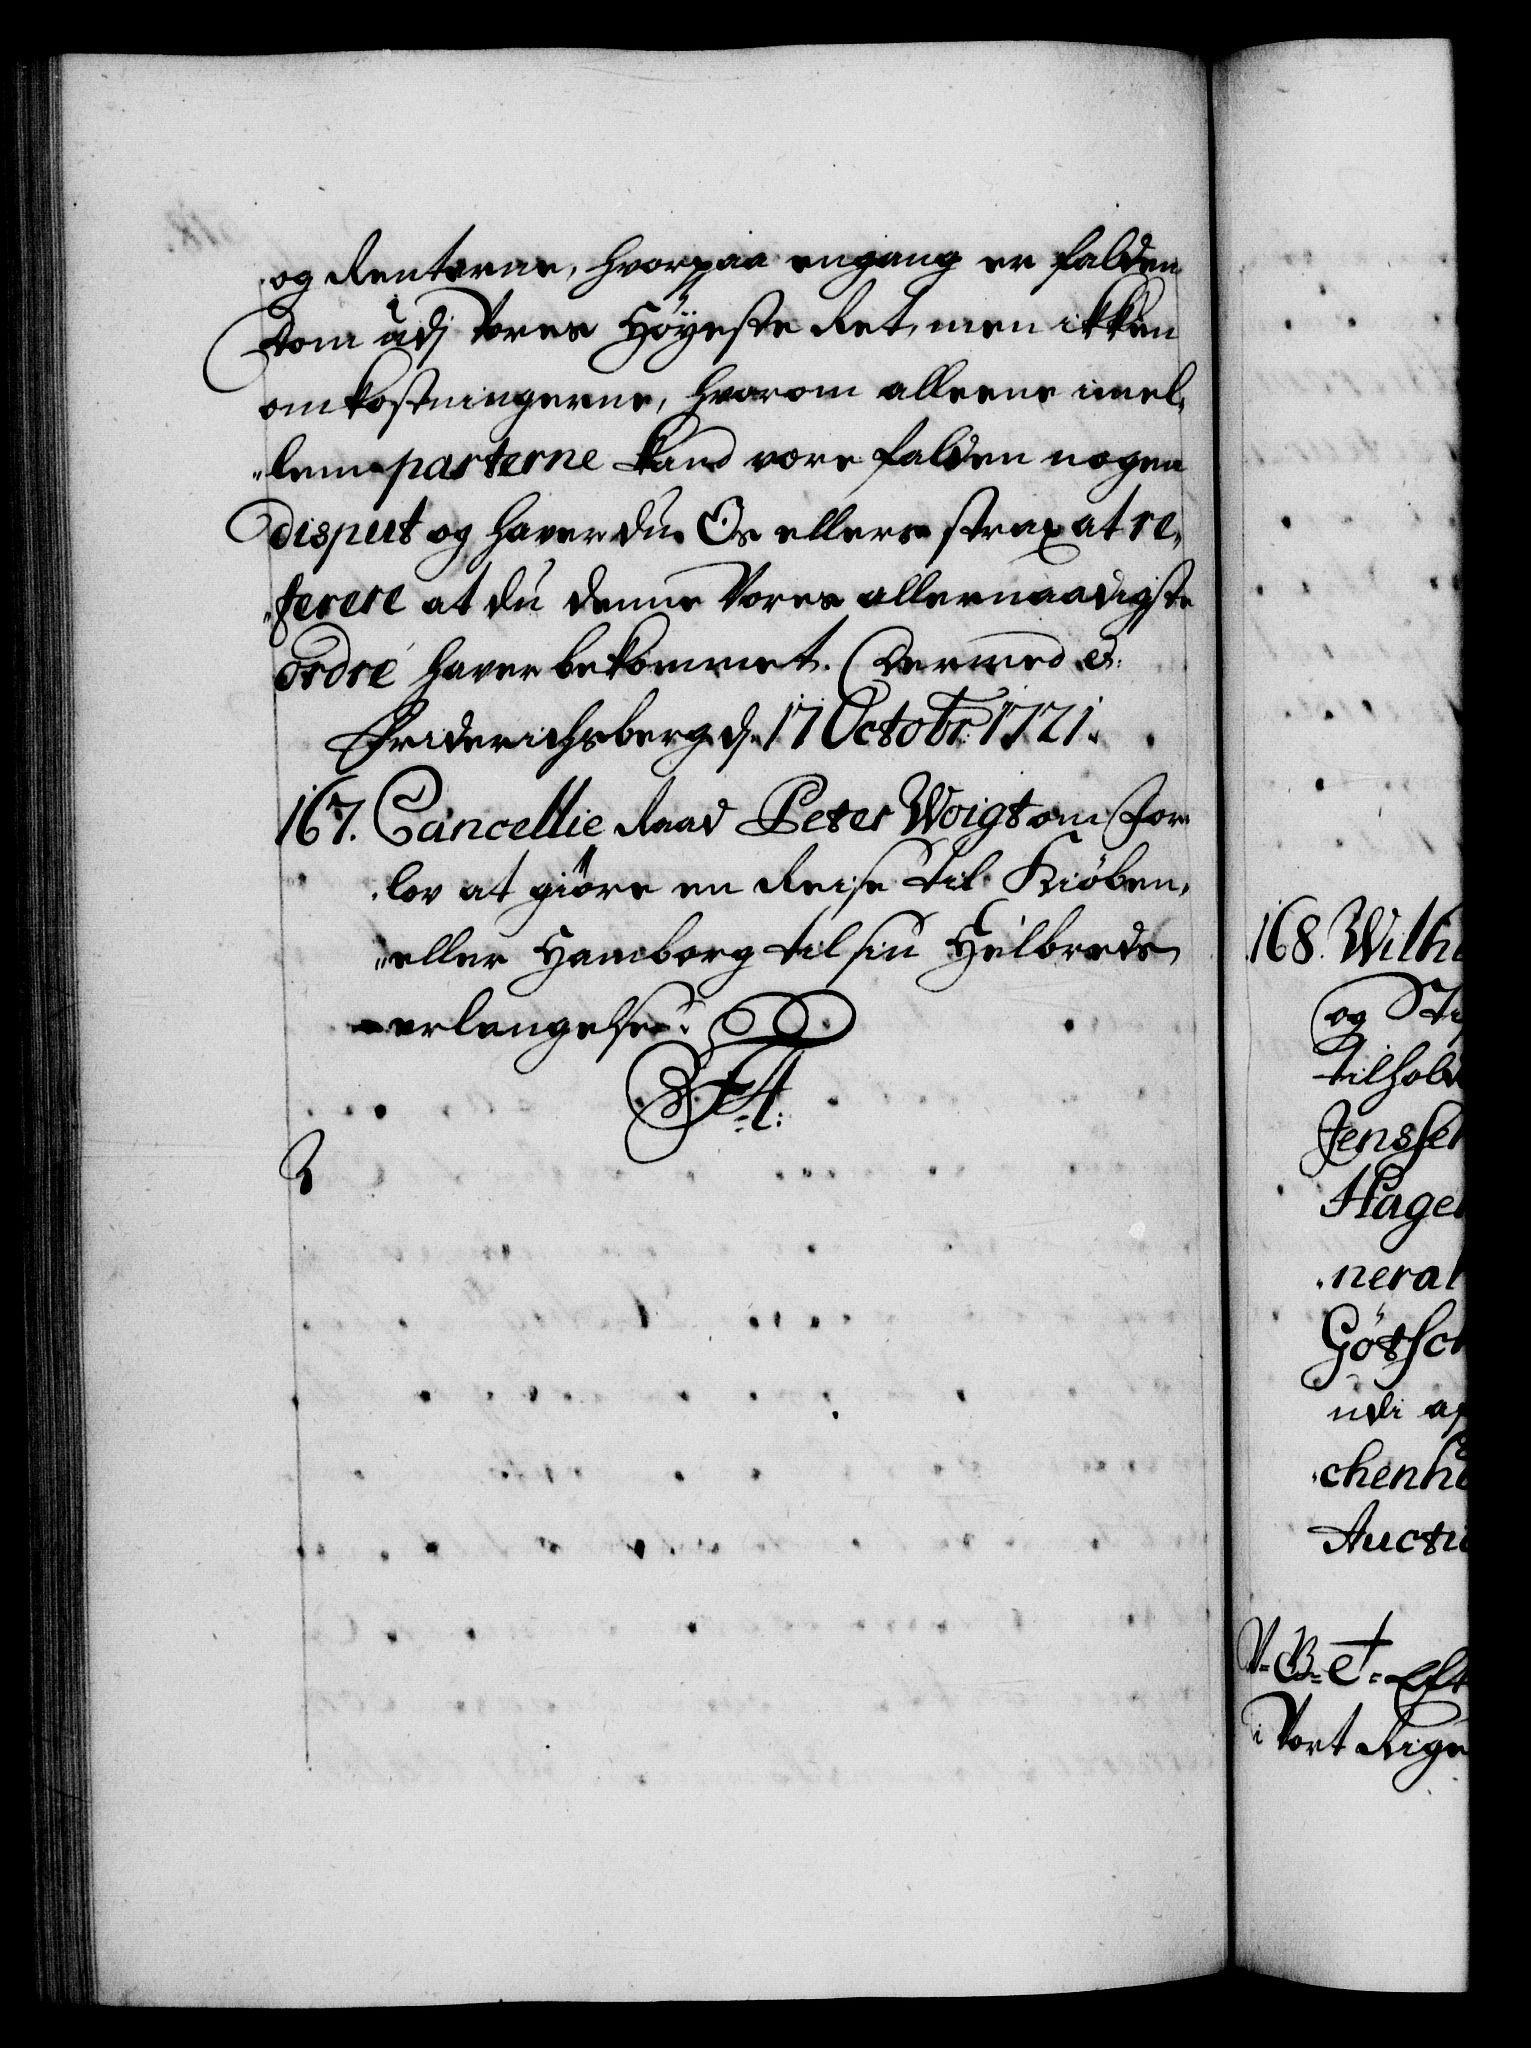 og Renterne, hvorpaa engang er falden
Dom udj Vores Höyeste Ret, men ikke
omkostningerne, hvorom alleene imel,
"lem parterne kand være falden nogen
disput og haver du Os ellers strax at re,
"ferere at du denne Vores allernaadigste
ordre haver bekommet. Dermed etc.
Friderichsberg d. 17 Octobr: 1721.
167. Cancellie Raad Peter Woigt om for
lov at giöre en Reise til Kiöben,
"eller Hamborg til sin Helbreds
erlangelse.
168. Wilh
og Ti
tilhold
Jenssen
Hagen
neral
Götsch
udi a
chenh
Auctio
Eft
i Vort Rige